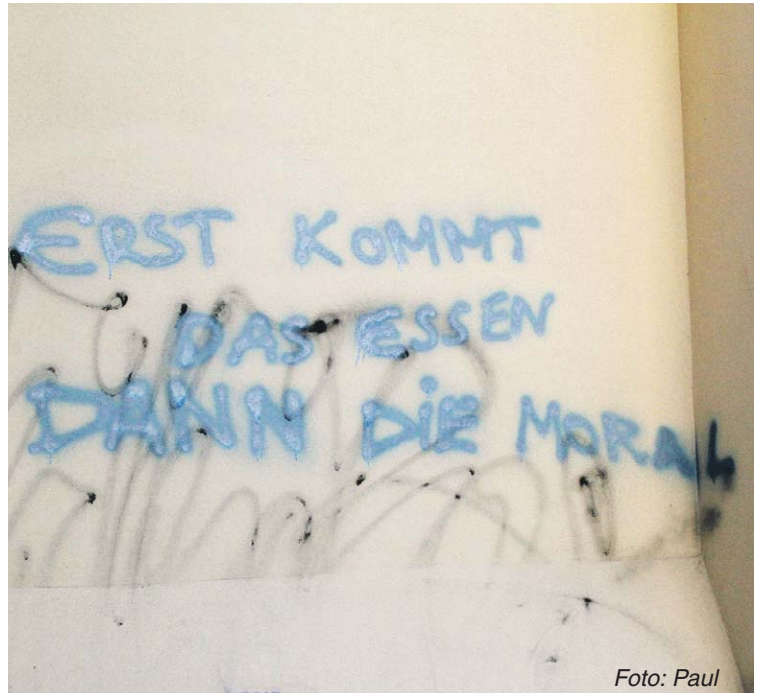 ERST KOMMT
DAS ESSEN
DANN DiE MORAL
Foto: Paul